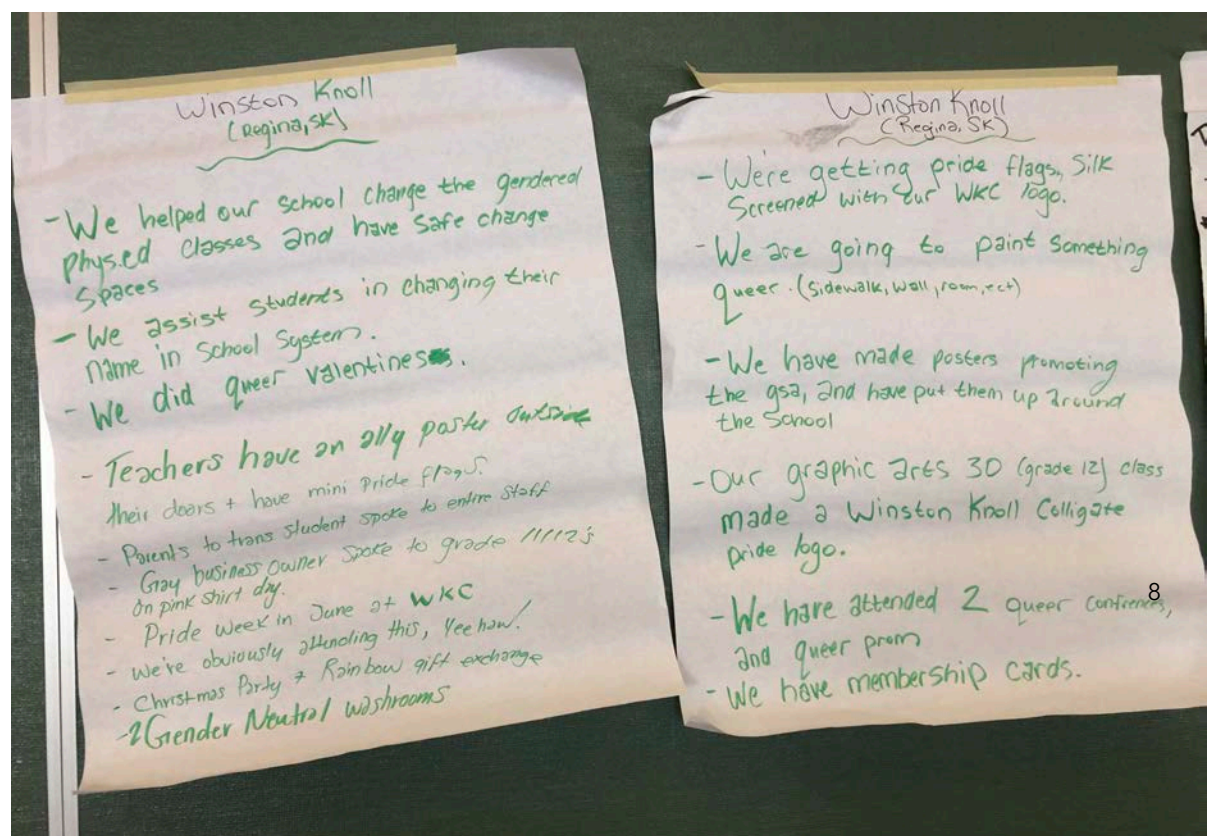 Winston Knoll
(Regina, SK)
- We helped our school change the gendered
phys.ed classes and have safe change
spaces
- We assist students in changing their
name in School System.
- We did queer valentines.
- Teachers have an ally poster outside
their doors + have mini Pride flags.
- Parents to trans student spoke to entire staff
- Gay business owner spoke to grade 11/12's
on pink shirt day.
- Pride week in June at WKC
- we're obviously attending this, Yee haw!
- Christmas Party + Rainbow gift exchange
- 2 Gender Neutral washrooms
Winston Knoll
(Regina, SK)
- We're getting pride flags, Silk
Screened with our WKC logo.
- We are going to paint something
queer. (sidewalk, wall, room, ect)
- We have made posters promoting
the gsa, and have put them up around
the School
- Our graphic arts 30 (grade 12) class
made a Winston Knoll Colligate
pride logo.
- We have attended 2 queer confrences,
and queer prom
- We have membership cards.
8